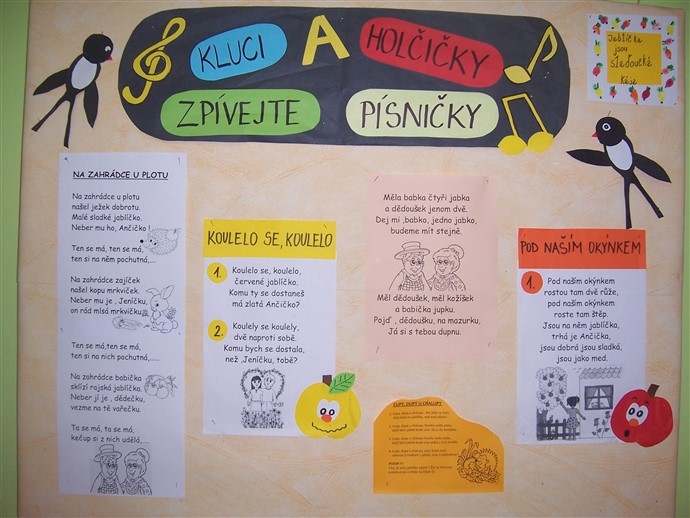 KLUCI A HOLČIČKY
ZPÍVEJTE PÍSNIČKY
Jablíčka
jsou
sladoučká
NA ZAHRÁDCE U PLOTU
Na zahrádce u plotu
našel ježek dobrotu.
Malé sladké jablíčko.
Neber mu ho, Ančičko!
Ten se má, ten se má,
ten si na něm pochutná,...
Na zahrádce zajíček
našel kopu mrkviček.
Neber mu je, Jeníčku,
on rád mlsá mrkvičku.
Ten se má,ten se má,
ten si na nich pochutná,.....
Na zahrádce babička
sklízí rajská jablíčka.
Neber jí je, dědečku,
vezme na tě vařečku.
Ta se má, ta se má,
kečup si z nich udělá,...
KOULELO SE, KOULELO
1. Koulelo se, koulelo,
červené jablíčko.
Komu ty se dostaneš
má zlatá Ančičko?
2. Koulely se koulely,
dvě naproti sobě.
Komu bych se dostala,
než ,Jeníčku, tobě?
Měla babka čtyři jabka
a dědoušek jenom dvě.
Dej mi ,babko, jedno jabko,
budeme mít stejně.
Měl dědoušek, měl kožíšek
a babička jupku.
Pojď , dědoušku, na mazurku,
Já si s tebou dupnu.
POD NAŠÍM OKÝNKEM
1. Pod naším okýnkem
rostou tam dvě růže,
pod naším okýnkem
roste tam štěp.
Jsou na něm jablíčka,
trhá je Ančička,
jsou dobrá jsou sladká,
jsou jako med.